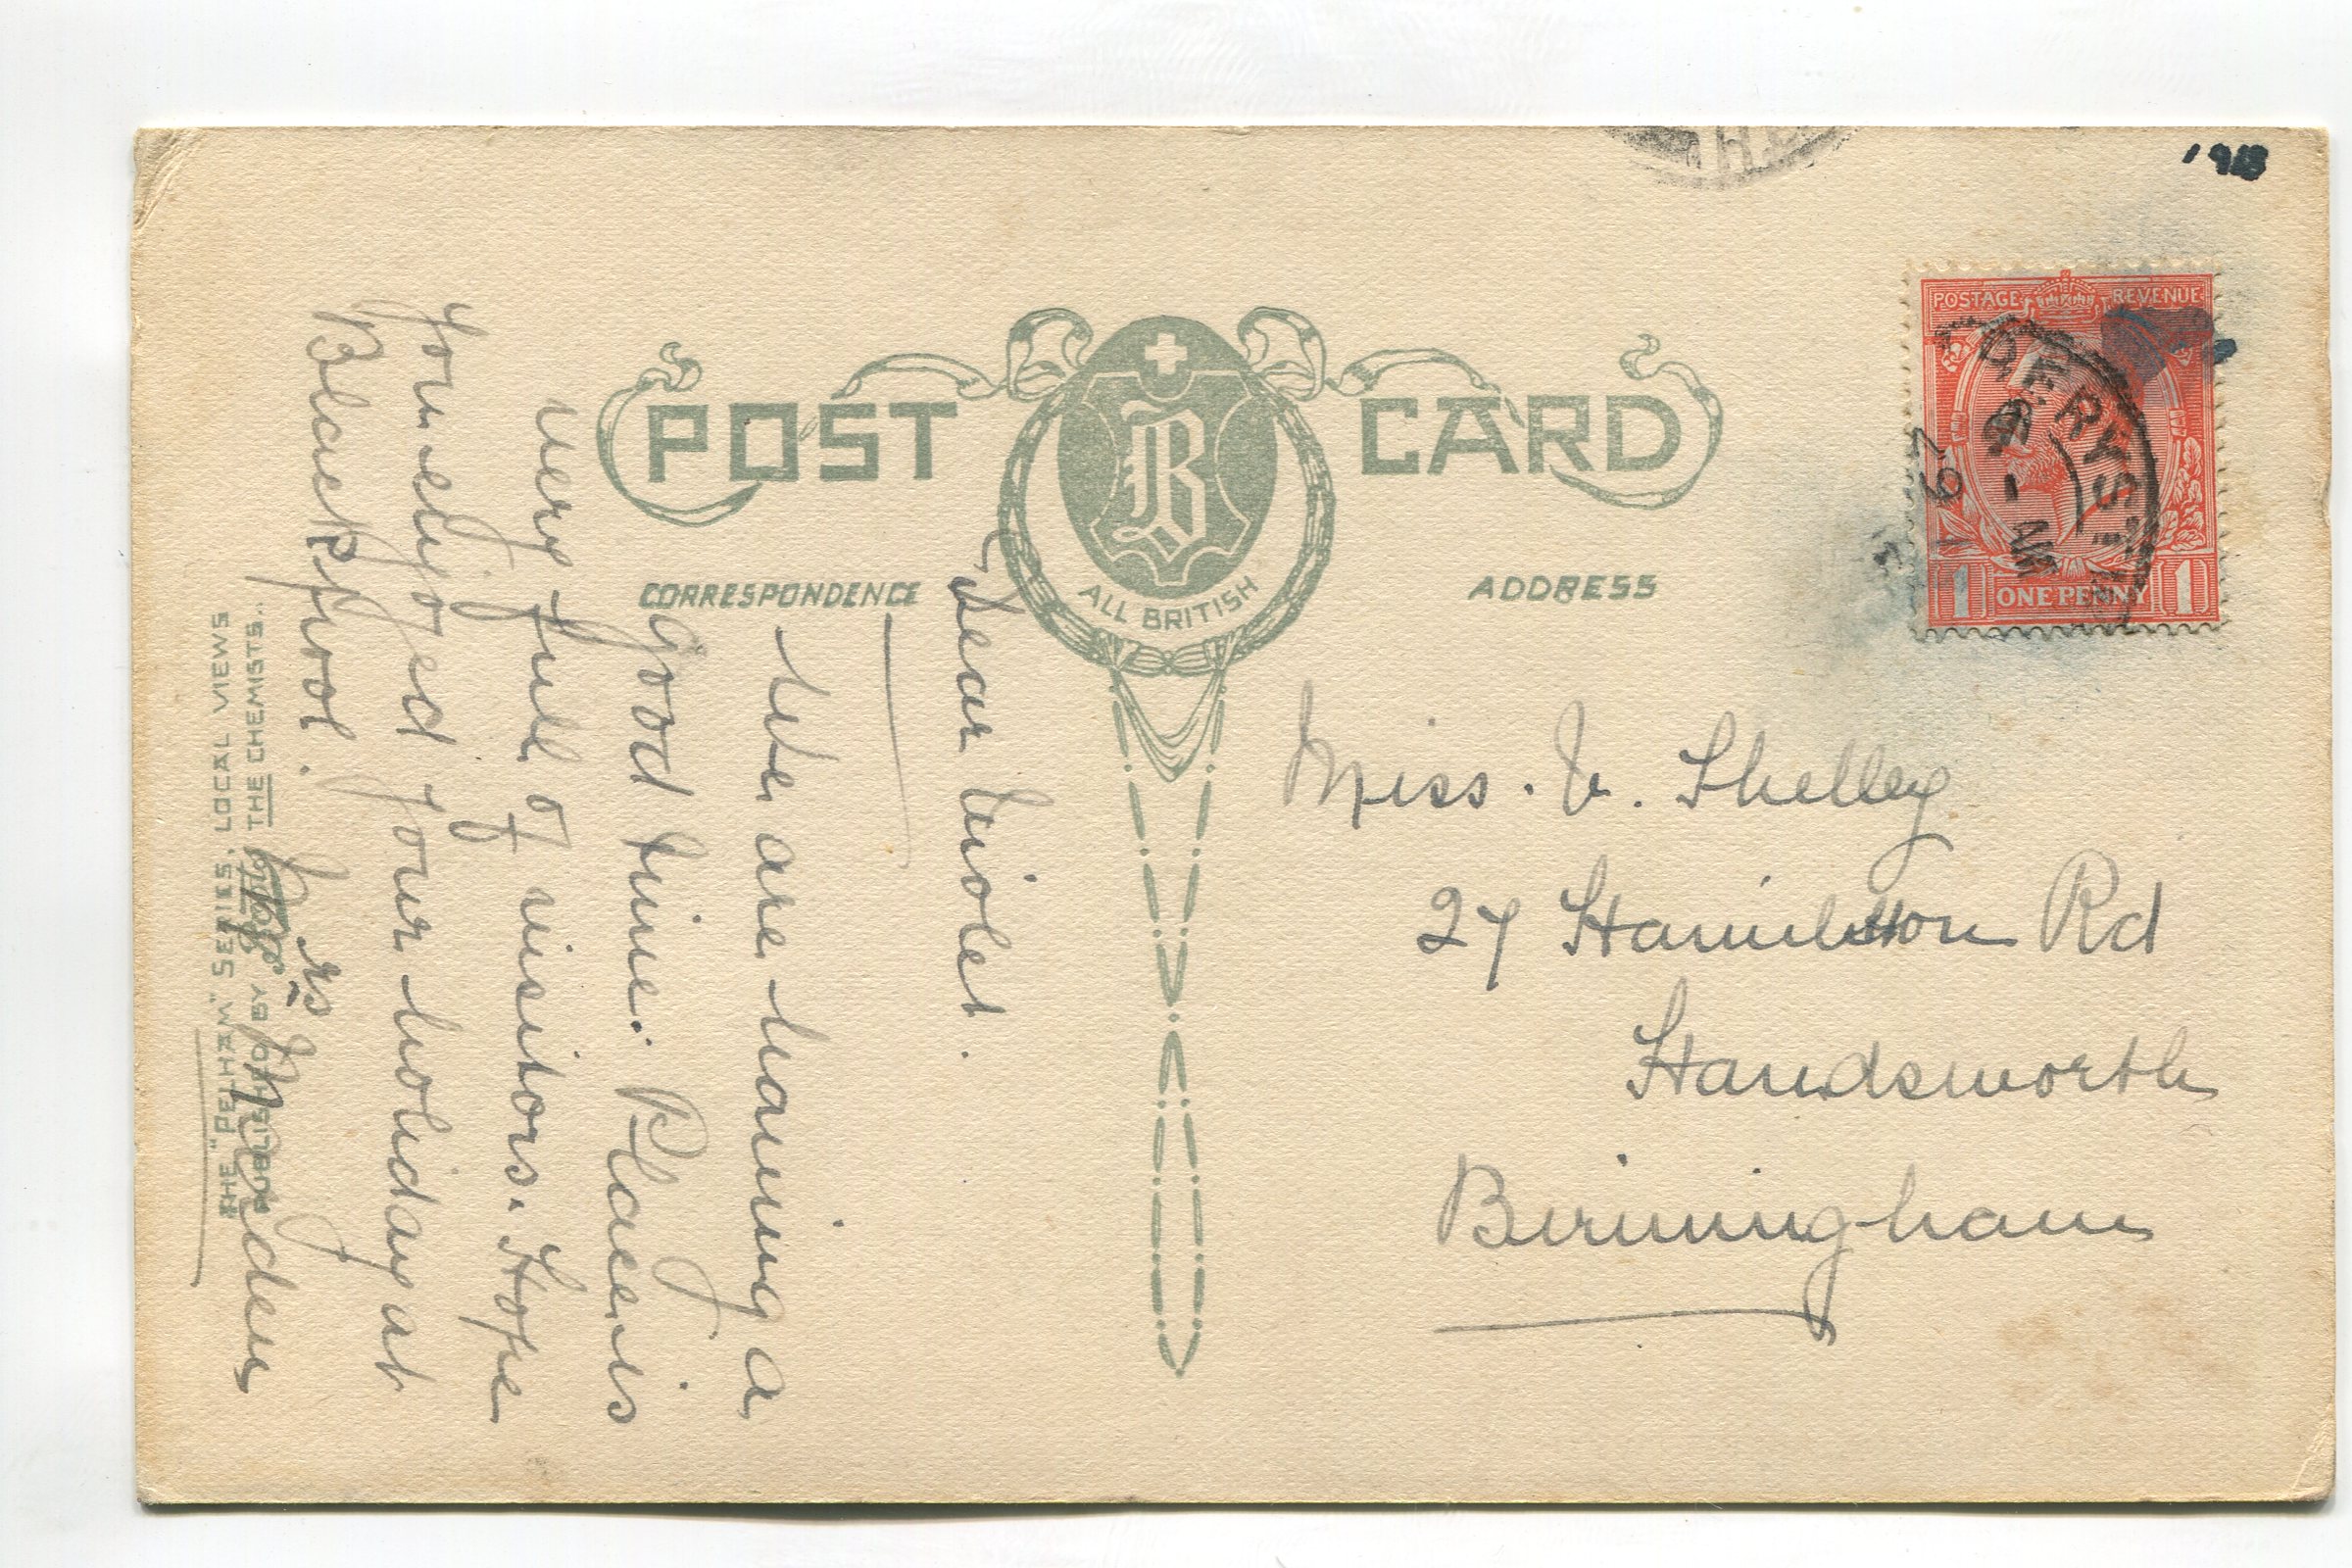 POST CARD
B
ALL BRITISH
CORRESPONDENCE
ADDRESS
POSTAGE REVENUE
1 ONE PENNY 1
Dear Violet.
We are having a
good time. Place is
very full of visitors. Hope
you enjoyed your holiday at
Blackpool.
Marsden
Miss. V. Shelley
27 Hamilton Rd
Handsworth
Birmingham
THE "PELHAM" SERIES, LOCAL VIEWS
PUBLISHED BY Boots THE CHEMISTS.